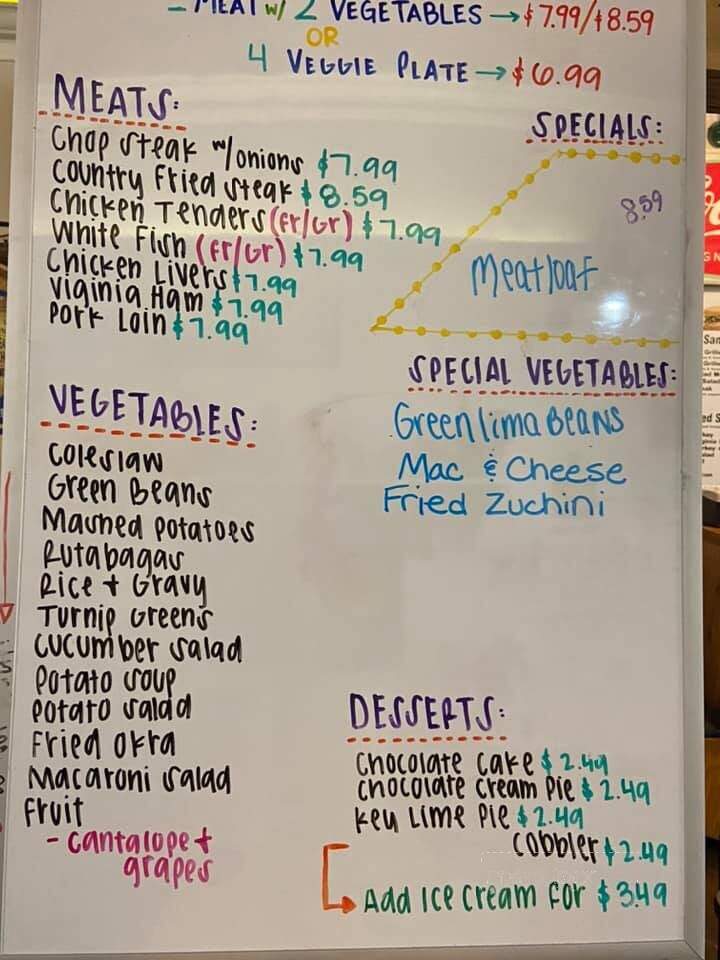 - MEAT w/ 2 VEGETABLES → $7.99/$8.59
OR
4 VEGGIE PLATE → $6.99
MEATS:
Chop Steak w/onions $7.99
Country Fried Steak $8.59
Chicken Tenders (Fr/Gr) $7.99
White Fish (Fr/Gr) $7.99
Chicken Livers $7.99
Viginia Ham $7.99
Pork Loin $7.99
SPECIALS:
8.59
Meatloaf
SPECIAL VEGETABLES:
Green lima BEANS
Mac & Cheese
Fried Zuchini
VEGETABLES:
Coleslaw
Green Beans
Mashed Potatoes
Rutabagas
Rice + Gravy
Turnip Greens
Cucumber Salad
Potato Soup
Potato Salad
Fried Okra
Macaroni Salad
Fruit
- Cantalope +
grapes
DESSERTS:
Chocolate Cake $2.49
Chocolate Cream Pie $2.49
Key Lime Pie $2.49
Cobbler $2.49
Add Ice Cream For $3.49